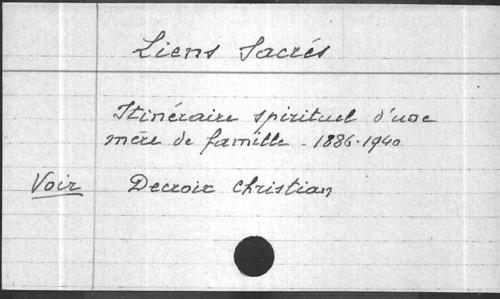 Liens Sacrés
Itinéraire spirituel d'une
mère de famille - 1886-1940
Voir Decroix Christian